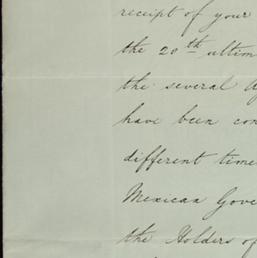 receipt of your
the 20th ultim
the several A
have been con
different time
Mexican Gove
the Holders of